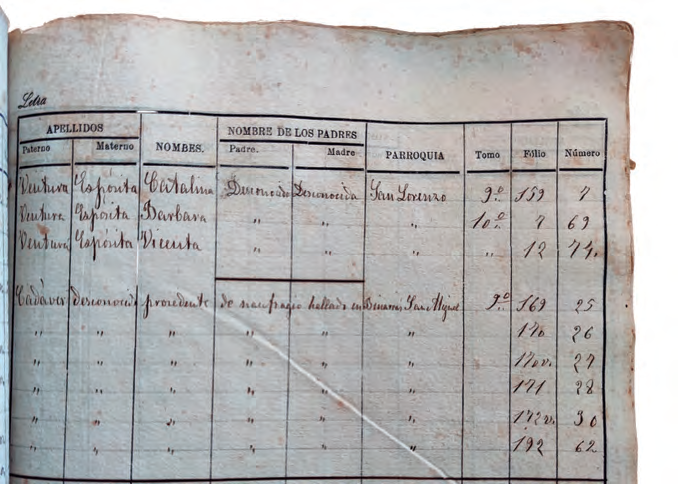 Letra
APELLIDOS NOMBRE DE LOS PADRES
Paterno Materno NOMBES. Padre. Madre PARROQUIA Tomo Fólio Número
Ventura Espósita Catalina Desconocido Desconocida San Lorenzo 9.º 159 7
Ventura Espósita Barbara " " " 10.º 7 69
Ventura Espósita Vicenta " " " " 12 74.
Cadáver desconocido procedente de naufragio hallado en San Miguel 9.º 169 25
" " " " " " 170 26
" " " " " " 170v. 27
" " " " " " 171 28
" " " " " " 172v. 30
" " " " " " 192 62